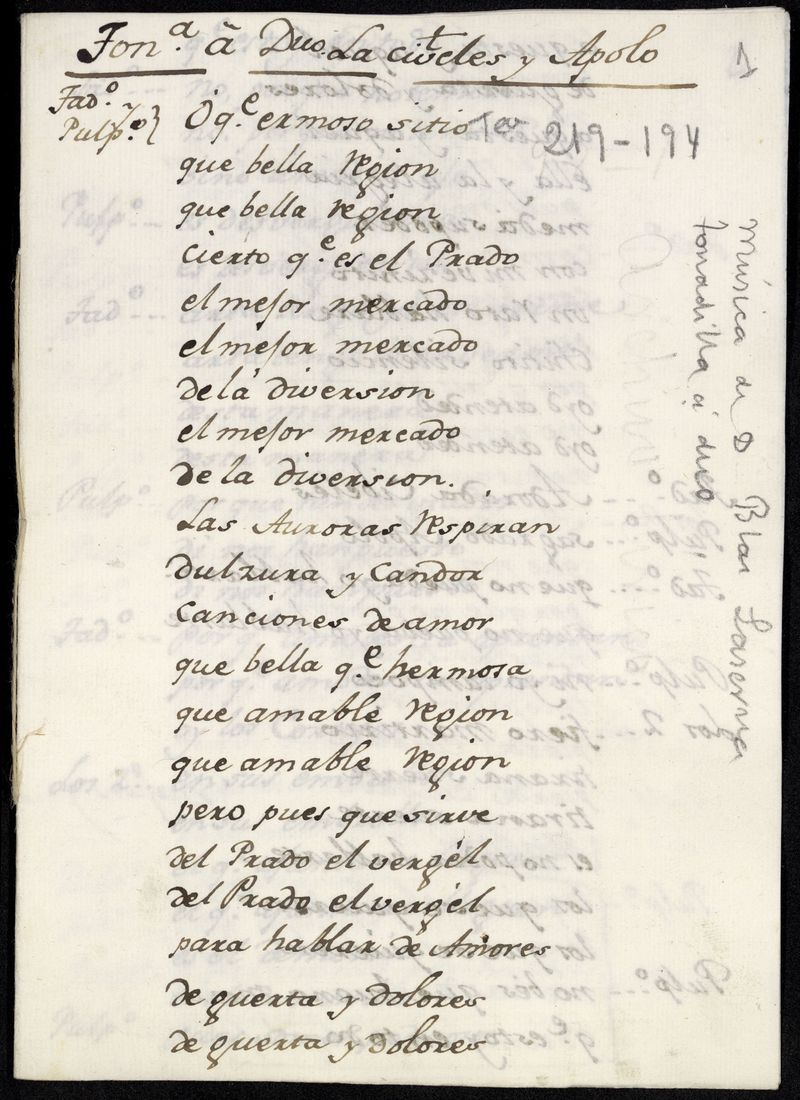 Ton.a â Duo. La civteles y Apolo
1
Tad.o y
Pulp.o} O q.e ermoso sitio
Tea 219-194
que bella region
que bella region
cierto q.e es el Prado
el mejor mercado
el mejor mercado
de la diversion
el mejor mercado
de la diversion.
Las Auroras respiran
dulzura y Candor
Canciones de amor
que bella q.e hermosa
que amable region
que amable region
pero pues que sirve
del Prado el vergél
del Prado el vergél
para hablar de Amores
de guerta y dolores
de guerta y dolores
Música de D Blas Laserna
Tonadilla a duo